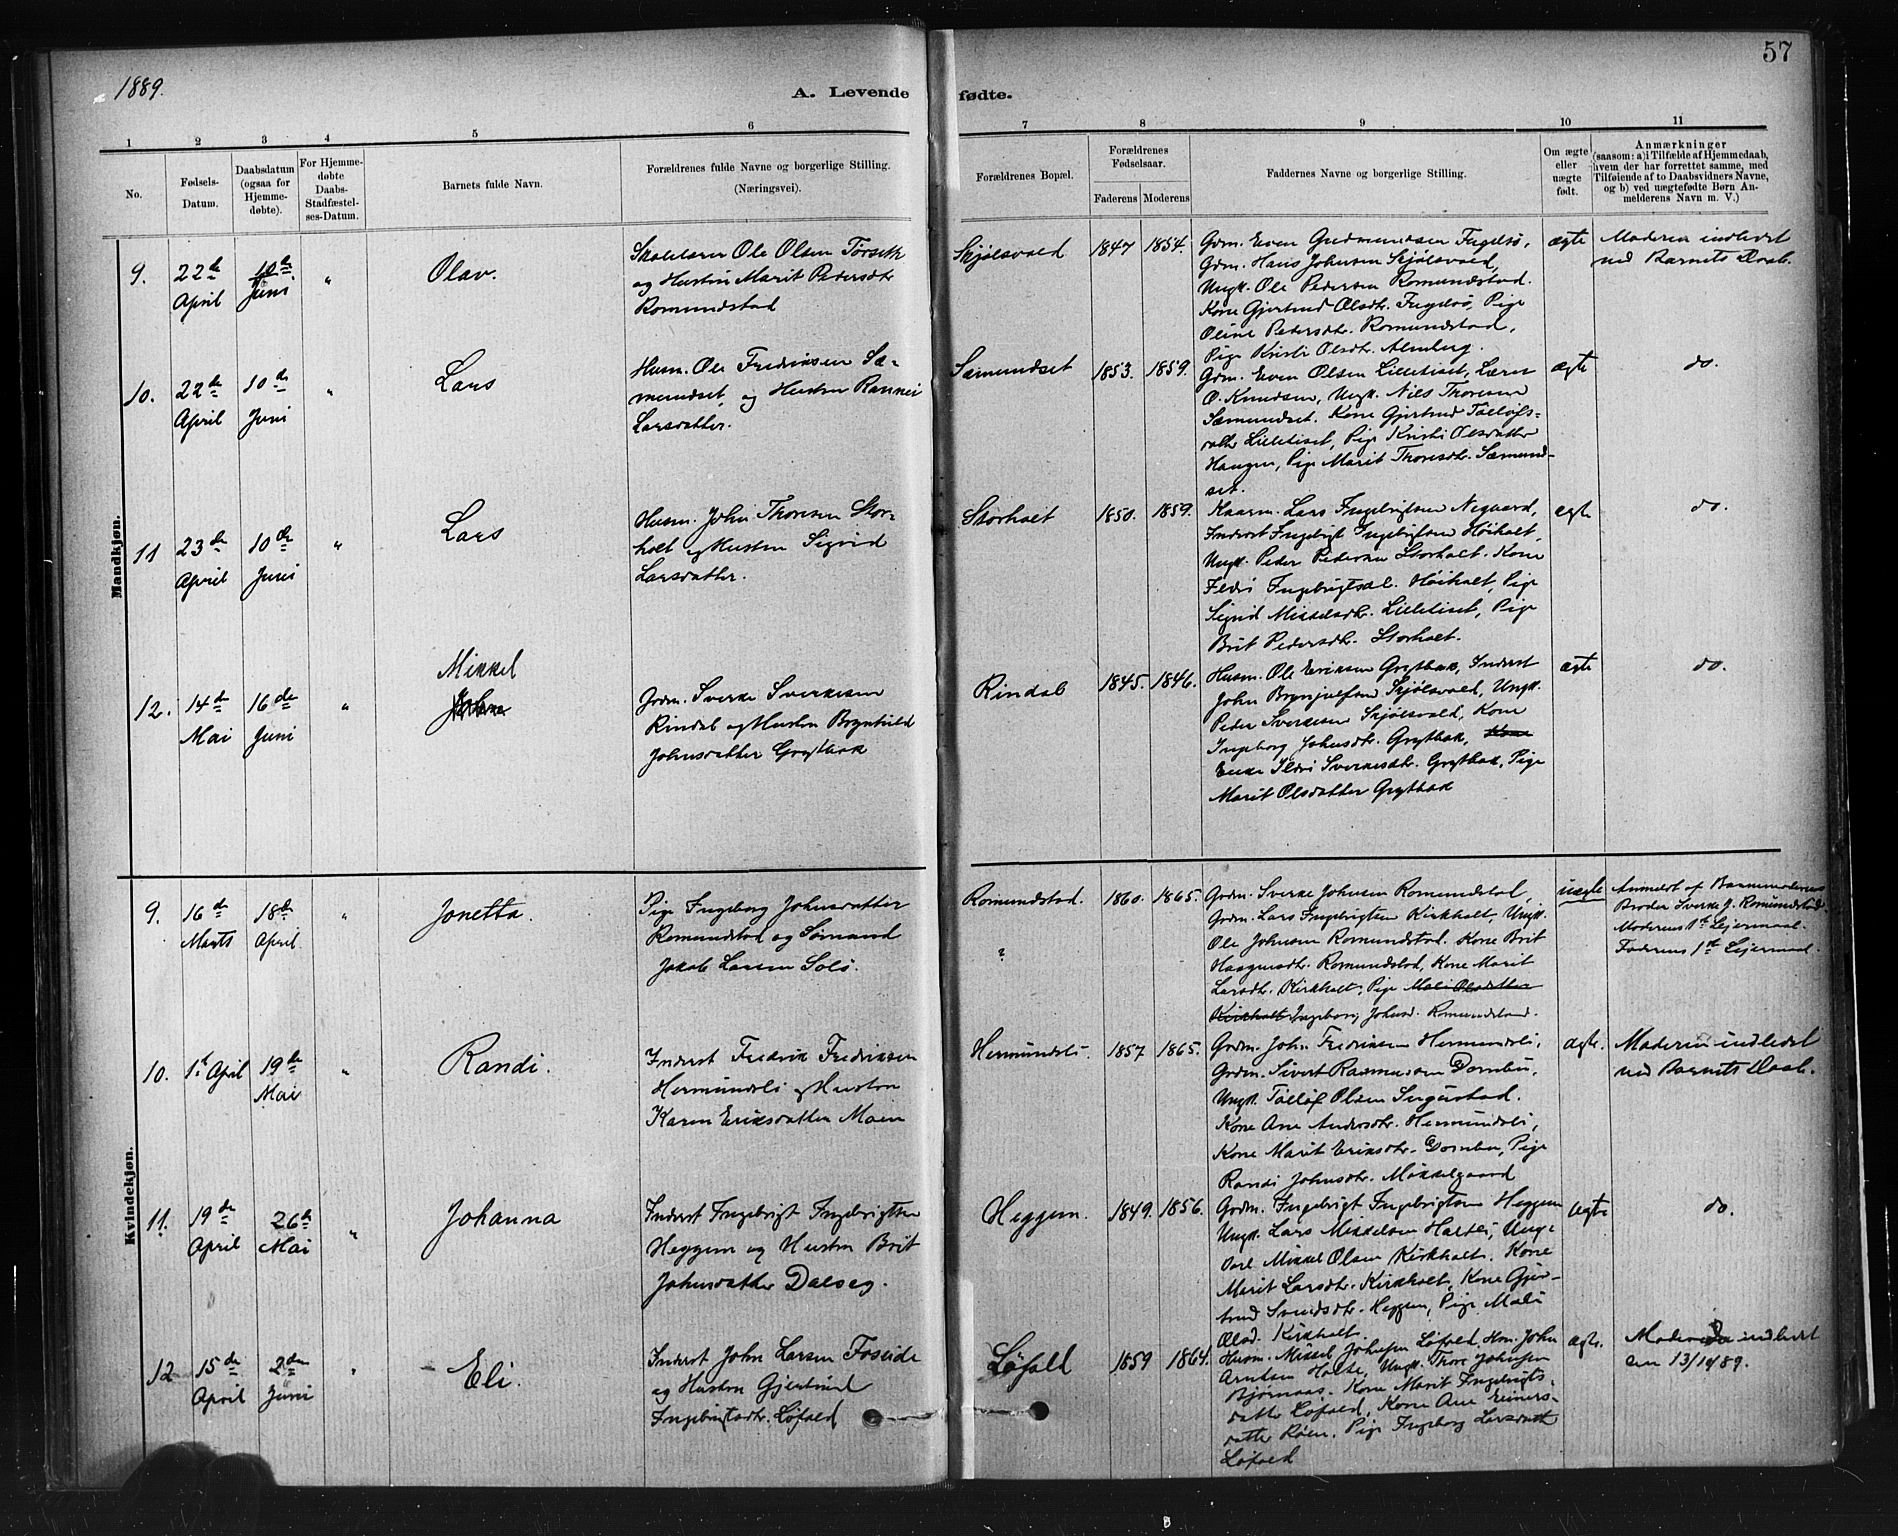 1889.
57
A. Levende fødte.
1 2 3 4 5 6 7 8 9 10 11
No.
Fødsels-Datum.
Daabsdatum (ogsaa for Hjemme-døbte).
For Hjemme-døbte Daabs-Stadfæstel-ses-Datum.
Barnets fulde Navn.
Forældrenes fulde Navne og borgerlige Stilling. (Næringsvei).
Forældrenes Bopæl.
Forældrenes Fødselsaar.
Faderens Moderens
Faddernes Navne og borgerlige Stilling.
Om ægte eller uægte født.
Anmærkninger
(saasom: a) i Tilfælde af Hjemmedaab, hvem der har forrettet samme, med Tilføiende af to Daabsvidners Navne, og b) ved uægtefødte Børn An-melderens Navn m. V.)
Mandkjøn.
9.
22de April
10de Juni
"
Olav.
Skolelærer Ole Olsen Torseth
og Hustru Marit Pedersdtr
Romundstad
Skjølsvold
1847
1854.
Grdm. Even Gudmundsen Fugelsø,
Grdm. Hans Johnsen Skjølsvold,
Ungk. Ole Pedersen Romundstad.
Kone Gjertrud Olsdtr. Fugelsø, Pige
Oline Petersdtr. Romundstad,
Pige Kristi Olsdtr. Almberg.
ægte
Moderen indledet
ved Barnets Daab.
10.
22de April
10de Juni
"
Lars
Husm. Ole Fredriksen Sæ-
mundset, og Hustru Rannei
Larsdatter.
Sæmundset
1853.
1859.
Grdm. Even Olsen Lilletiset, Lærer
O. Knudsen, Ungk. Nils Thoresen
Sæmundset. Kone Gjertrud Tollefs-
datter Lilletiset, Pige Kristi Olsdatter
Haugen, Pige Marit Thoresdtr. Sæmund-
set.
ægte
do.
11
23de April
10de Juni
"
Lars
Husm. John Thoresen Stor-
holt og Hustru Sigrid
Larsdatter.
Storholt
1850.
1859.
Kaarm. Lars Ingebrigtsen Negaard,
Inderst Ingebrigt Ingebrigtsen Høiholt,
Ungk. Peder Pedersen Storholt. Kone
Ildri Ingebrigtsd. Høiholt, Pige
Sigrid Mikkelsdtr. Lilletiset, Pige
Brit Pedersdtr. Storholt.
ægte
do.
12.
14de Mai
16de Juni
"
Mikkel
Grdm. Sverke Sverkesen
Rindal og Hustru Brynhild
Johnsdatter Grytbak
Rindal
1845.
1846.
Husm. Ole Eriksen Grytbak, Inderst
John Brynjulfsen Skjølsvold, Ungk.
Peder Sverkesen Skjølsvold, Kone
Ingeborg Johnsdtr. Grytbak, Kone
Enke Ildri Sverkesdtr. Grytbak, Pige
Marit Olsdatter Grytbak
ægte
do.
Kvindekjøn.
9.
16de Marts
18de April.
"
Jonetta.
Pige Ingeborg Johnsdatter
Romundstad og Sømand
Jakob Larsen Solø.
Romundstad.
?
1860.
1865.
Grdm. Sverke Johnsen Romundstad,
Grdm. Lars Ingebrigtsen Kirkholt, Ungk.
Ole Johnsen Romundstad. Kone Brit
Haagensdtr. Romundstad, Kone Marit
Larsdtr. Kirkholt, Pige Mali Olsdatter
Kirkholt Ingeborg Johnsd. Romundstad.
uægte
Anmeldt af Barnemoderens
Broder Sverke J. Romundstad.
Moderens 1ste Leiermaal.
Faderens 1ste Leiermaal.
10.
1st April
19de Mai
"
Randi.
Inderst Fredrik Fredriksen
Hermundsli og Hustru
Karen Eriksdatter Moen
Hermundsli.
1857
1865.
Grdm. John Fredriksen Hermundsli,
Grdm. Sivert Rasmussen Dørnbu,
Ungk. Tollef Olsen Ingerstad.
Kone Ane Andersdtr. Hermundsli,
Kone Marit Eriksdtr. Dørnbu, Pige
Randi Johnsdtr. Mikkelgaard
ægte.
Moderen indledet
ved Barnets Daab.
11.
19de April
26de Mai
"
Johanna
Inderst Ingebrigt Ingebrigtsen
Heggem og Hustru Brit
Johnsdatter Dalseg.
Heggem.
1849.
1856.
Grdm. Ingebrigt Ingebrigtsen Heggem
Ungk. Lars Mikkelsen Holtli, Ung-
karl Mikkel Olsen Kirkholt. Kone
Marit Larsdtr. Kirkholt, Kone Gjer-
trud Svendsdtr. Heggem, Pige Mali
Olsd. Kirkholt.
ægte
do.
12
15de April
2den Juni
"
Eli.
Inderst John Larsen Foseide
og Hustru Gjertrud
Ingebrigtsdtr. Løfald
Løfald
1859
1864.
Husm. Mikkel Johnsen Løfald, Hm. John
Arntsen Holte, Ungk. Thore Johnsen
Bjørnaas. Kone Marit Ingebrigts-
datter Løfald, Kone Ane Einers-
datter Røen. Pige Ingeborg Larsdatt
Løfald
ægte.
Moderen indledet
den 13/10 89.